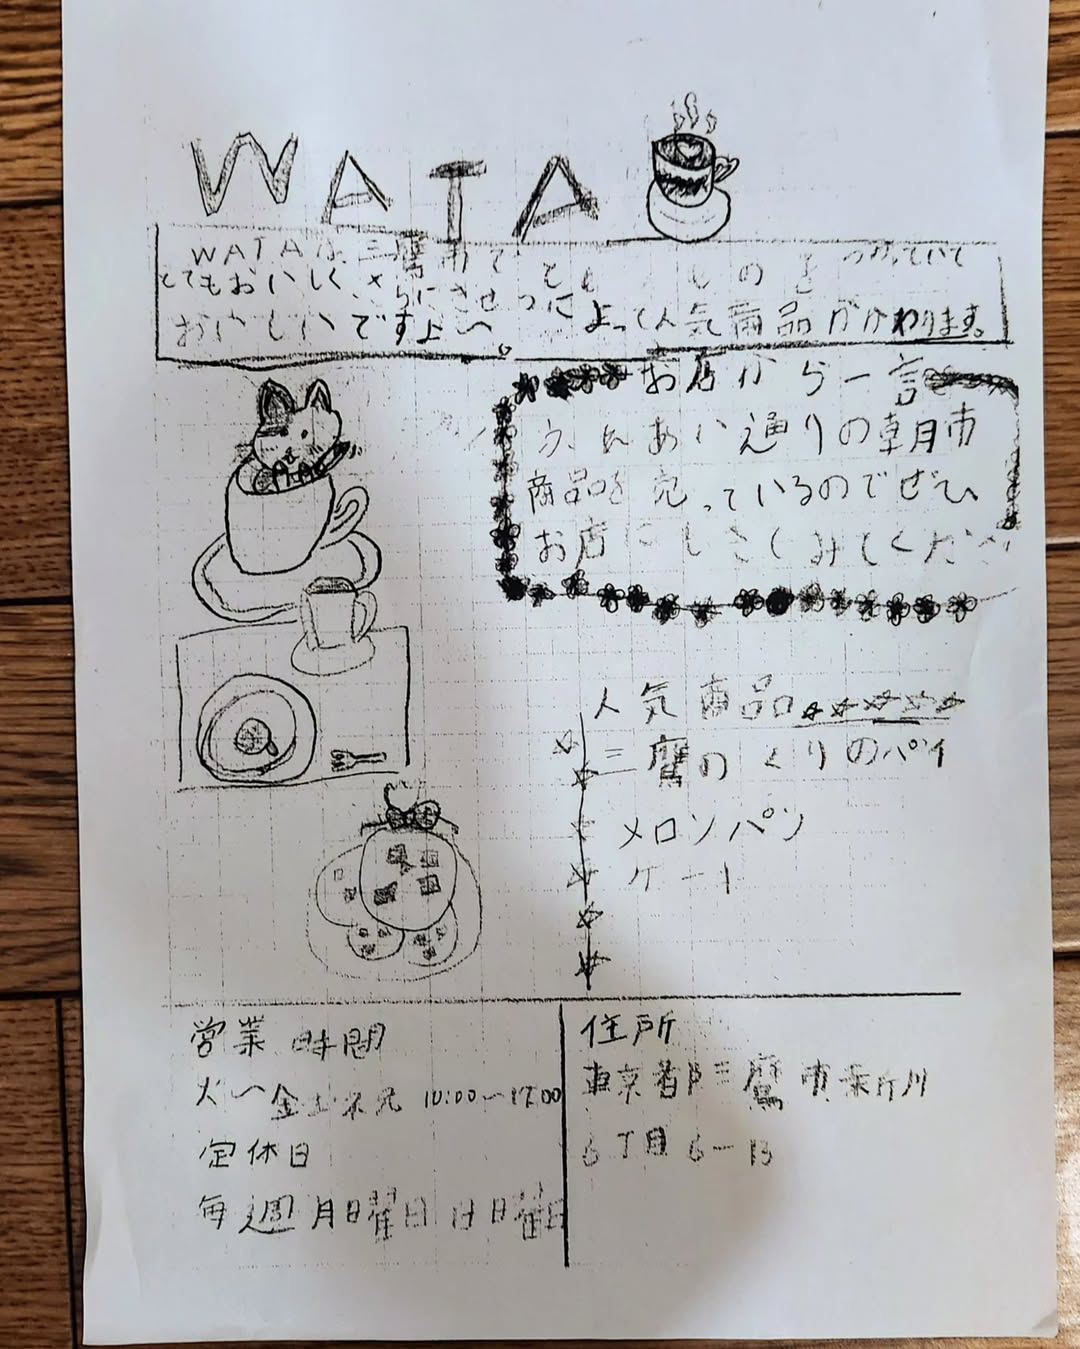 WATA
WATAは三鷹市で とも ものを つかっていて
とてもおいしく、さらにきせつに
おいしいですよ〜。 よって人気商品がかわります。
お店から一言
ふれあい通りの朝市
商品を売っているのでぜひ
お店にしきてみてください
人気商品
三鷹のくりのパイ
メロンパン
ケーキ
営業時間
火〜金 10:00〜17:00
定休日
毎週月曜日 日曜日
住所
東京都三鷹市
6丁目6-13